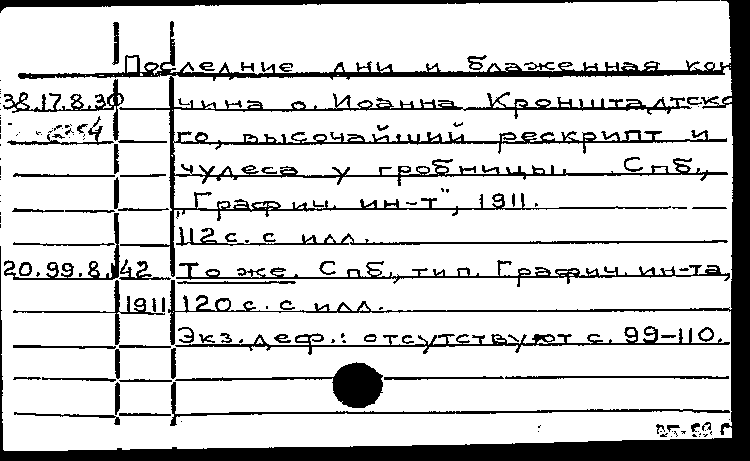 Последние дни и блаженная кон
38.17.8.30 чина о. Иоанна Кронштадтско
6254 го, высочайший рескрипт и
чудеса у гробницы. Спб.,
"Графич. ин-т", 1911.
112 с. с илл.
20.99.8.142 То же. Спб., тип. Графич. ин-та,
1911. 120 с. с илл.
Экз. деф.: отсутствуют с. 99-110.